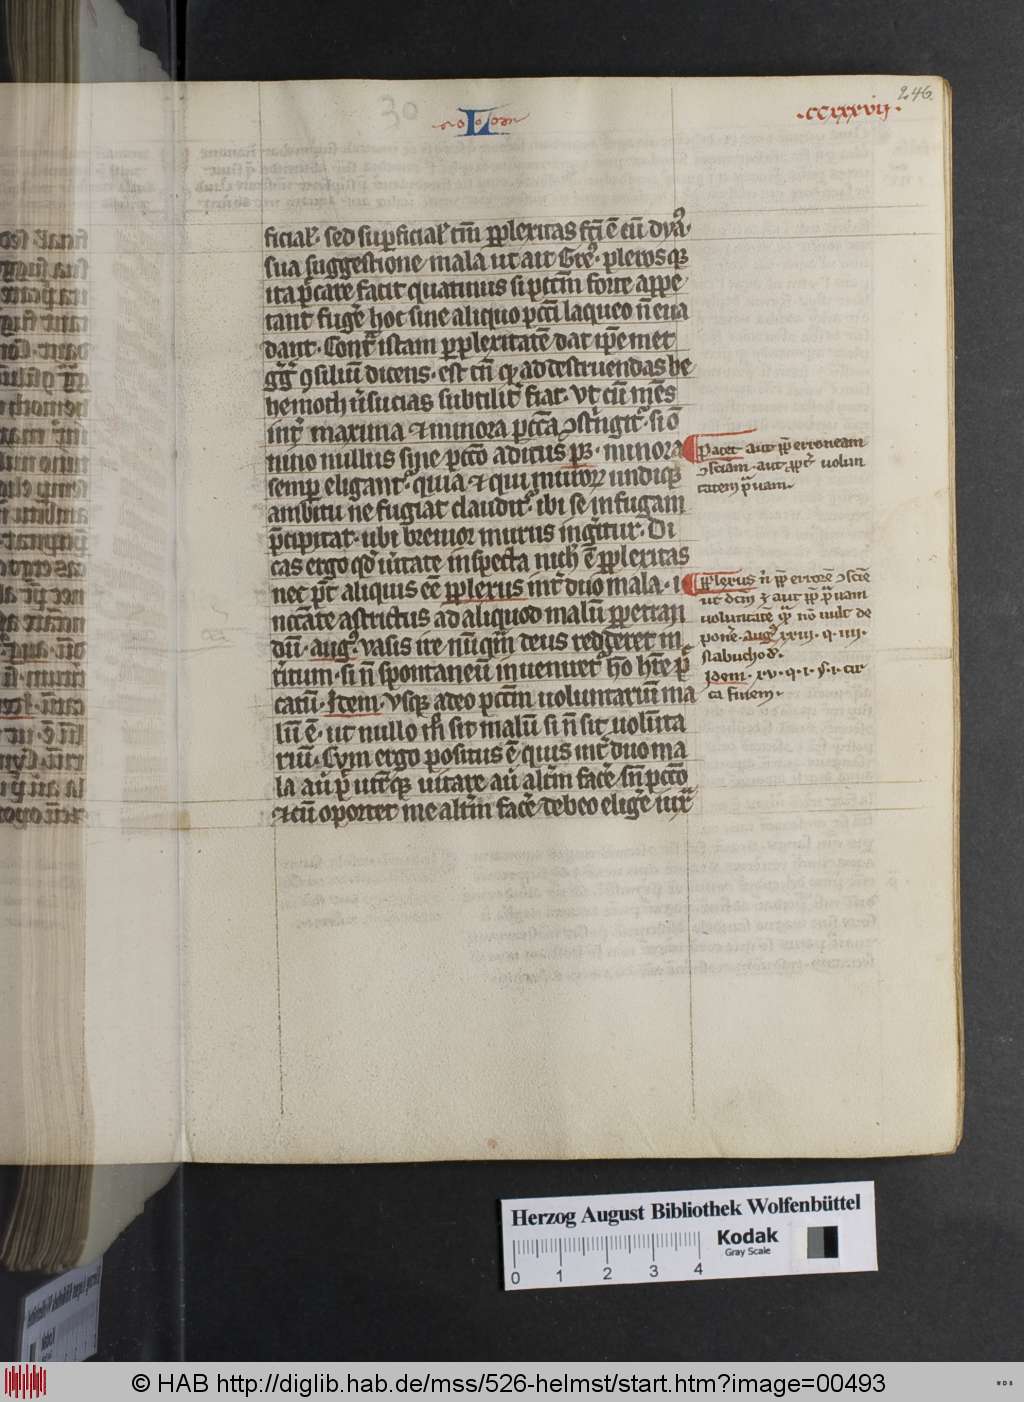 246
·ccxxxvii·
30
L
ficial'. sed suꝑficial' tm̄ ꝑplexitas fit ē cū dya'
sua suggestione mala ut ait Greg'. plerosqꝫ
ita peccare facit quatinus si pctm̄ forte appe
tant fugere hoc sine aliquo pcti laqueo n̄ eua
dant. Contͣ istam ꝑplexitatē dat ipse met
gg' ꝯsiliū dicens. est tn̄ qͥ ad destruendas be
hemoth ūsucias subtilit' fiat. Vt cū mēs
int' maxima ⁊ minora pctā ꝯstringit'. si o
nino nullus sine pctō aditus pꝫ. minora
semꝑ eligant'. quia ⁊ qui muroꝝ undiqꝫ
ambitu ne fugiat claudit'. ibi se in fugam
p̄cipitat. ubi breuior murus inuenitur. Di
cas ergo qd' ūitate inspecta nich' ē ꝑplexitas
nec p̄t aliquis ēē ꝑplexus int' duo mala. i
nccāte astrictus ad aliquod malū ꝑpetran
dū. aug'. vasis ire nūqm̄ deus redderet in
t'itum. si n̄ spontaneū inueniret' ho hr̄e pec
catū. Item. Vsqꝫ adeo pctm̄ uoluntariū ma
lū ē. ut nullo m° sit malū si n̄ sit uolūta
riū. Cum ergo positus ē quis int' duo ma
la aū p̄t utrūqꝫ uitare aū altm̄ fac'e sn̄ pctō
⁊ cū oportet me altm̄ fac'e debeo elig'e iux
Patet aut ꝓp̄ erroneam
ꝯsciam. aut ꝓpt' uolun
tatem prauam.
Ꝑplexus n̄ ꝓp̄ errorē ꝯscie
ut dcm̄ ē aut ꝓp̄ prauam
uoluntatē quā nō uult de
pone'. aug' xxiii. q. iiii.
nabuchod'.
Idem. xv. q. i. §. i. cir
ca finem.
Herzog August Bibliothek Wolfenbüttel
Kodak
Gray Scale
0 1 2 3 4
© HAB http://diglib.hab.de/mss/526-helmst/start.htm?image=00493